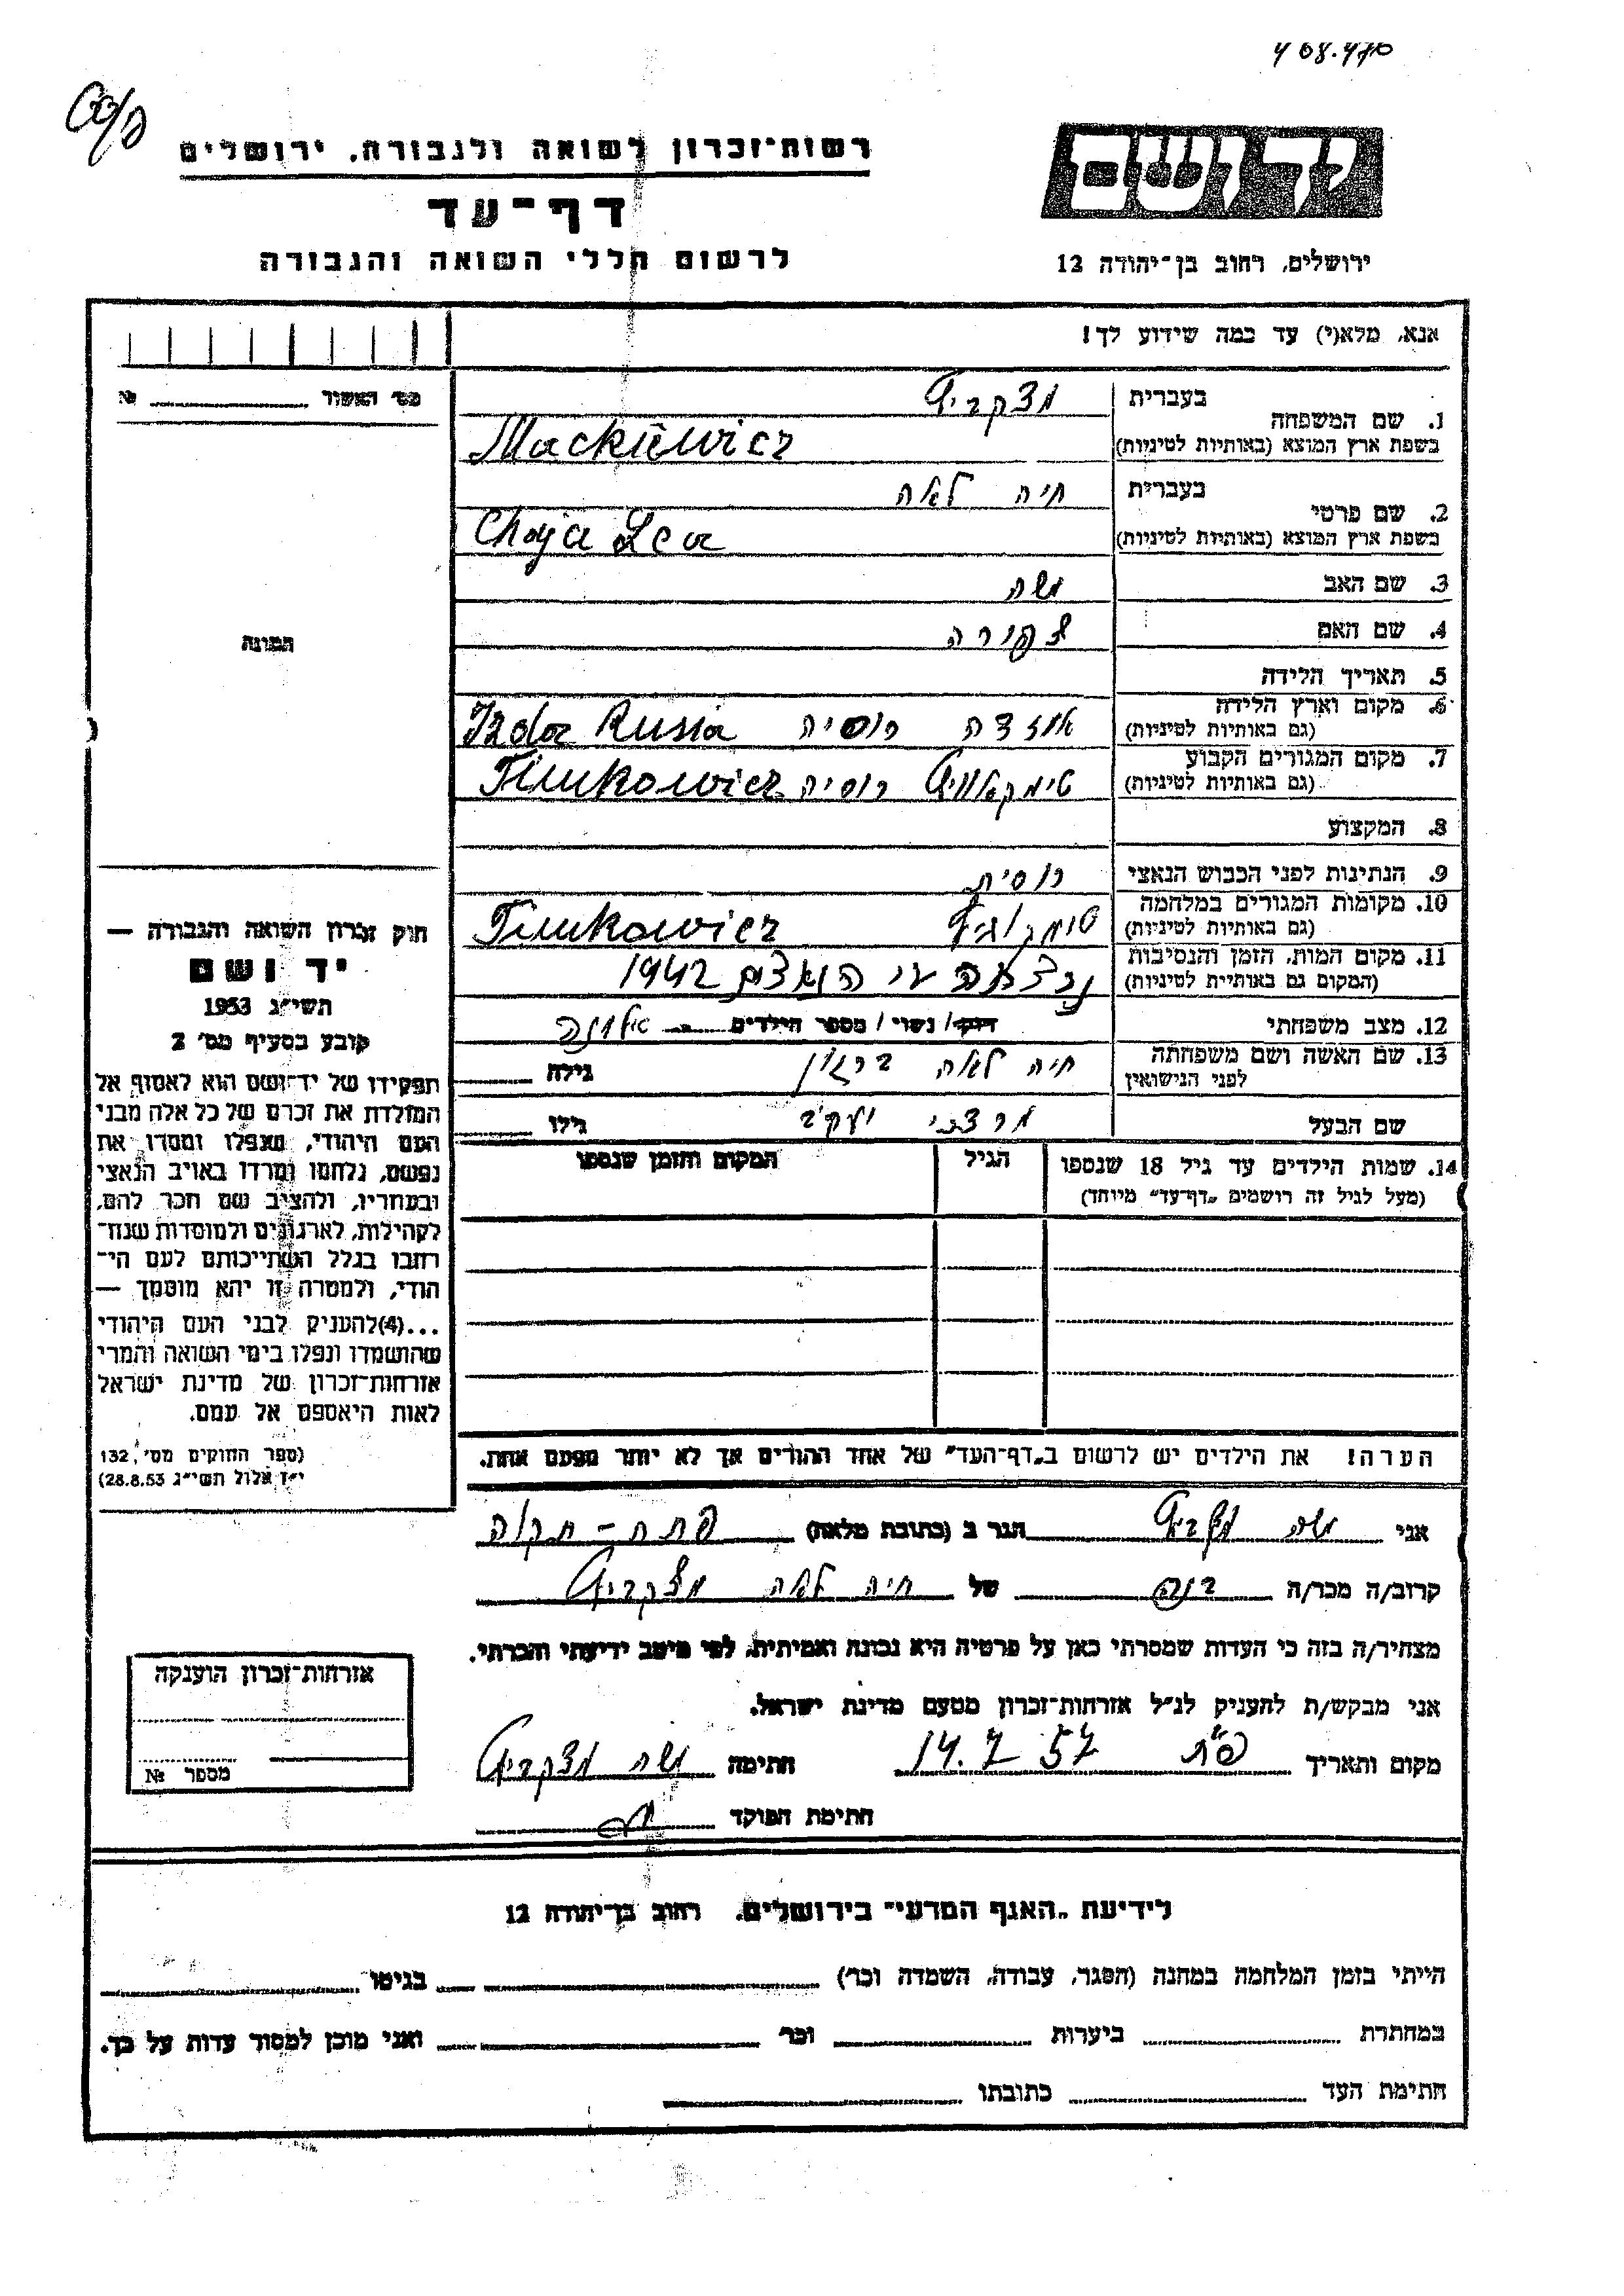 408.470
רשות־זכרון לשואה ולגבורה. ירושלים
דף־עד
לרשום חללי השואה והגבורה
ידושם
ירושלים, רחוב בן־יהודה 12
אנא, מלא(י) עד כמה שידוע לך!
מס' האשור № 
1. שם המשפחה
בעברית
בשפת ארץ המוצא (באותיות לטיניות)
Mackiewicz
2. שם פרטי
בעברית חיה לאה
בשפת ארץ המוצא (באותיות לטיניות) Chaja Lea
3. שם האב משה
4. שם האם צפורה
5. תאריך הלידה
6. מקום וארץ הלידה (גם באותיות לטיניות) אוזדה רוסיה Uzda Russia
7. מקום המגורים הקבוע (גם באותיות לטיניות) טימקאוויץ רוסיה Timkowicz
8. המקצוע
9. הנתינות לפני הכבוש הנאצי רוסית
10. מקומות המגורים במלחמה (גם באותיות לטיניות) טימקוביץ Timkowicz
11. מקום המות, הזמן והנסיבות (המקום גם באותיית לטיניות) נרצחה ע״י הנאצים 1942
12. מצב משפחתי רווק/ נשוי/ מספר הילדים אלמנה
13. שם האשה ושם משפחתה לפני הנישואין חיה לאה גילה
שם הבעל מרדכי יעקב גילו
14. שמות הילדים עד גיל 18 שנספו
(מעל לגיל זה רושמים „דף־עד״ מיוחד)
הגיל
המקום והזמן שנספו
הערה! את הילדים יש לרשום ב„דף־העד״ של אחד ההורים אך לא יותר מפעם אחת.
התמונה
חוק זכרון השואה והגבורה —
יד ושם
תשי״ג 1953
קובע בסעיף מס' 2
תפקידו של יד־ושם הוא לאסוף אל
המולדת את זכרם של כל אלה מבני
העם היהודי, שנפלו ומסרו את
נפשם, נלחמו ומרדו באויב הנאצי
ובעוזריו, ולהציב שם וזכר להם,
לקהילות, לארגונים ולמוסדות שנח־
רבו בגלל השתייכותם לעם הי־
הודי, ולמטרה זו יהא מוסמך —
...(4)להעניק לבני העם היהודי
שהושמדו ונפלו בימי השואה והמרי
אזרחות־זכרון של מדינת ישראל
לאות היאספם אל עמם.
(ספר החוקים מס' 132,
י״ז אלול תשי״ג 28.8.53)
אני משה מצקביץ הגר ב (כתובת מלאה) פתח-תקוה
קרוב/ה מכר/ה בנה של חיה לאה מצקביץ
מצהיר/ה בזה כי העדות שמסרתי כאן על פרטיה היא נכונה ואמיתית, לפי מיטב ידיעתי והכרתי.
אני מבקש/ת להעניק לנ״ל אזרחות־זכרון מטעם מדינת ישראל.
מקום ותאריך פ״ת 14.7 57 חתימה משה מצקביץ
חתימת הפוקד
אזרחות־זכרון הוענקה
מספר №
לידיעת „האגף המדעי״ בירושלים. רחוב בן־יהודה 12
הייתי בזמן המלחמה במחנה (הסגר, עבודה, השמדה וכו') בגיטו
במחתרת ביערות וכו' ואני מוכן למסור עדות על כך.
חתימת העד כתובתו